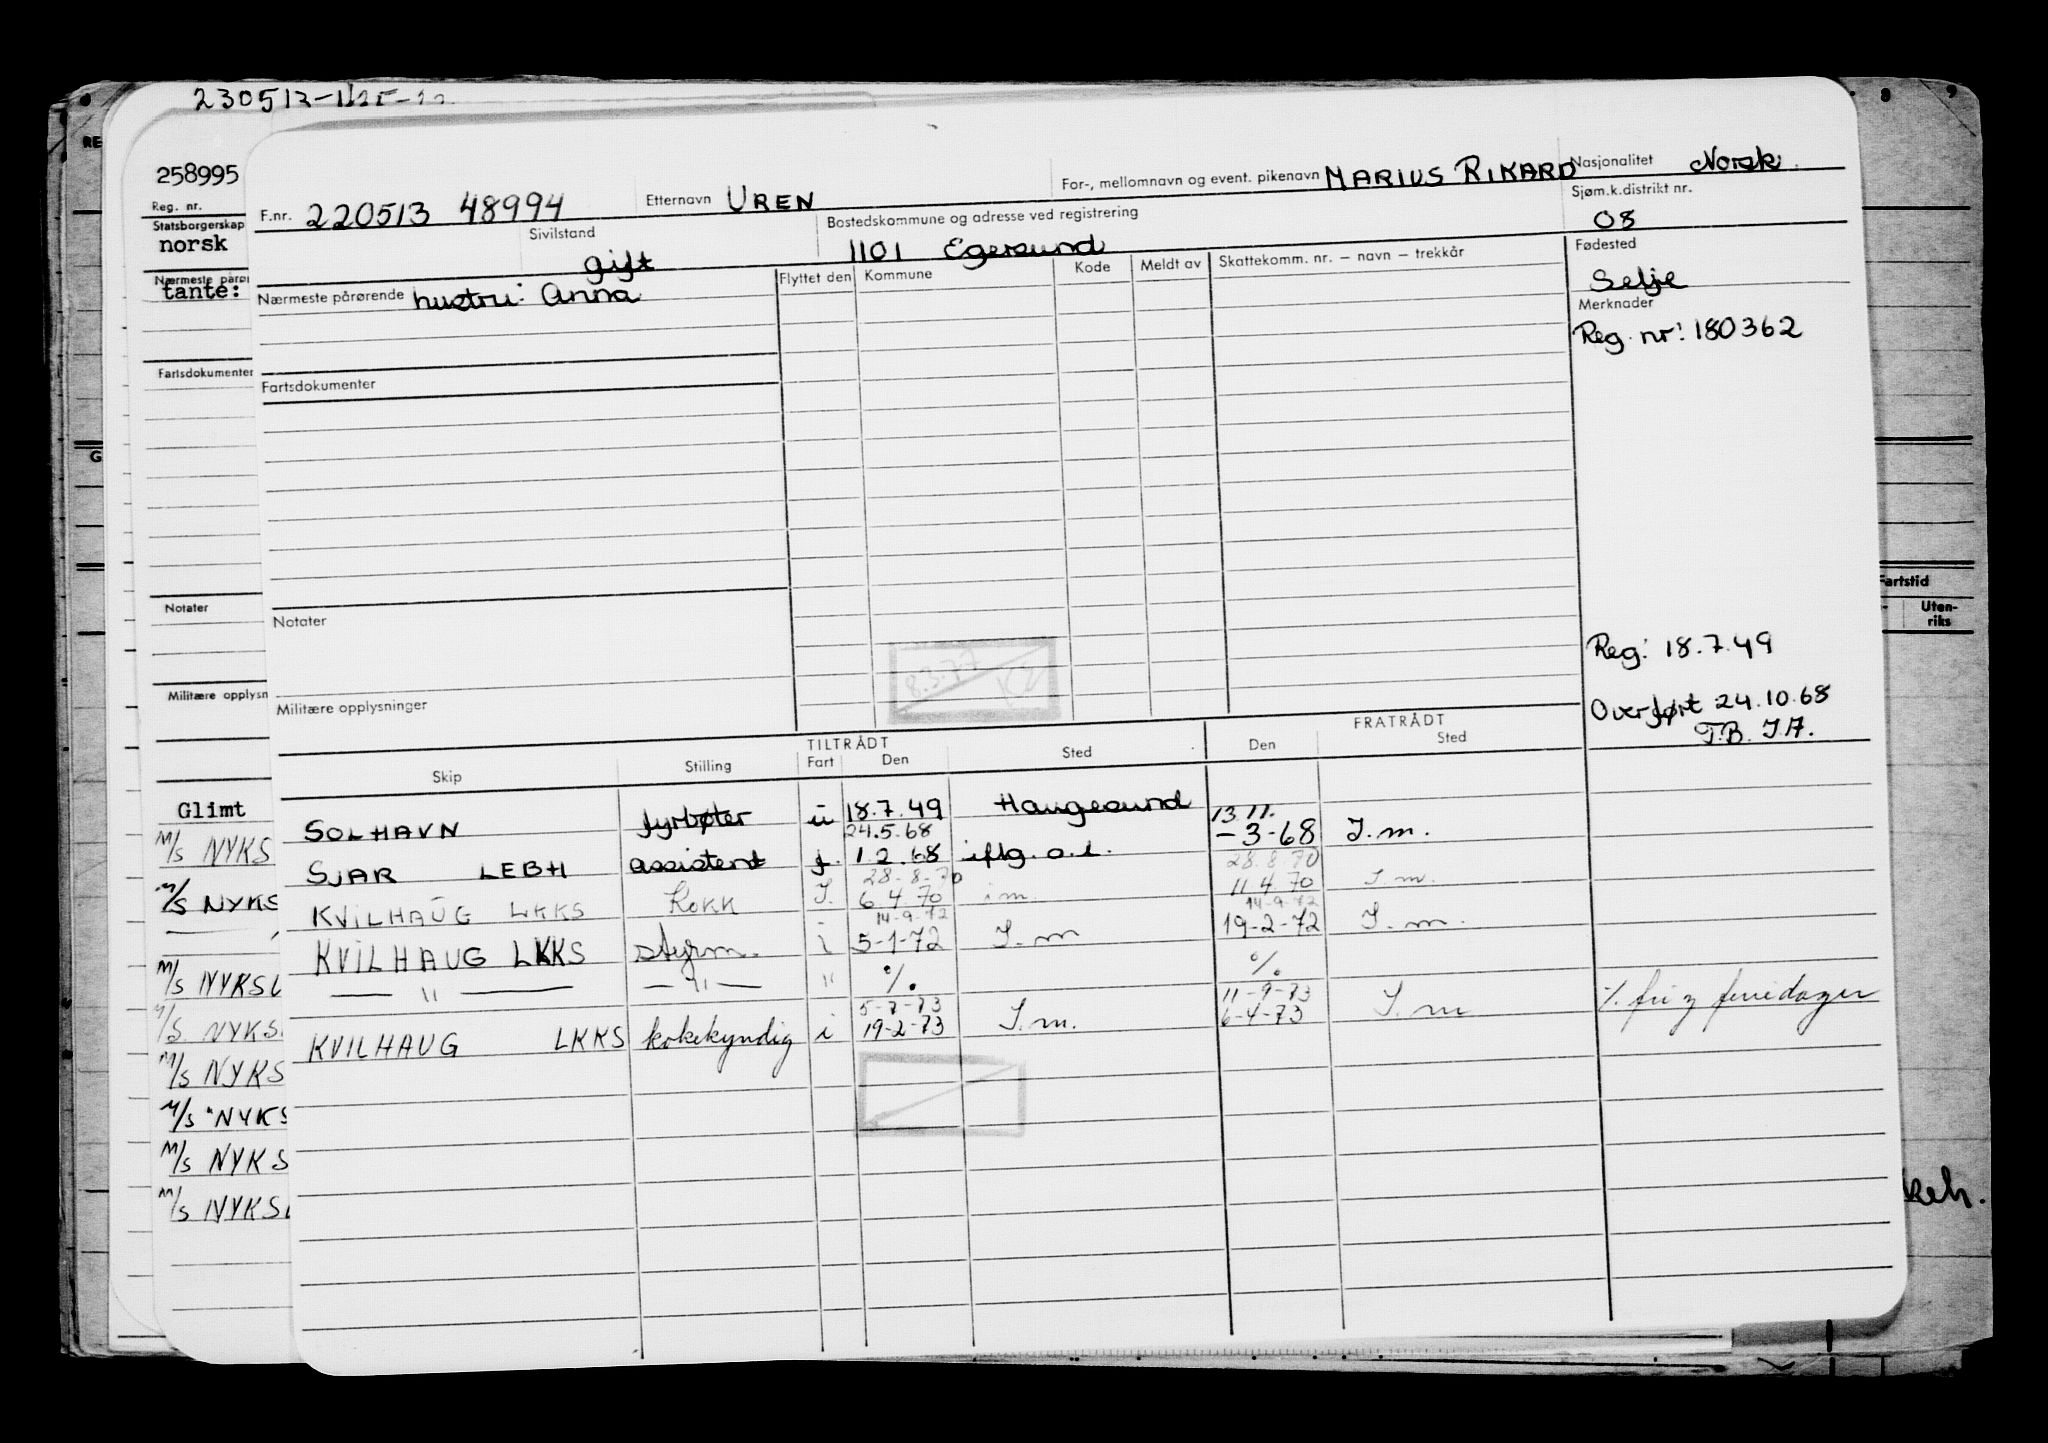 230513-
258995
Reg. nr.
Statsborgerskap
norsk
tante:
Fartsdokumenter
Notater
Militære opplysn
Glimt
M/S NYKS
M/S NYKS
M/S NYKSL
M/S NYKS
M/S NYKS
M/S "NYKS
M/S NYKS
M/S NYKSL
F.nr. 220513 48994 Etternavn UREN For-, mellomnavn og event. pikenavn MARIUS RIKARD Nasjonalitet Norsk.
Sivilstand gift Bostedskommune og adresse ved registrering 1101 Egersund Sjøm.k.distrikt nr. 08
Nærmeste pårørende hustru: Anna Flyttet den Kommune Kode Meldt av Skattekomm. nr. – navn – trekkår Fødested Selje
Merknader
Reg. nr: 180362
Fartsdokumenter
Notater
Reg: 18.7.49
8.3.77
Militære opplysninger
Overført 24.10.68
T.B. J.A.
TILTRÅDT FRATRÅDT
Skip Stilling Fart Den Sted Den Sted
SOLHAVN fyrbøter u 18.7.49 Haugesund 13.11.
24.5.68 -3-68 I.m.
SJAR LEBH assistent f. 1.2.68 iflg. o.l.
28-8-70 28.8.70
KVILHAUG LKKS Kokk I. 6.4.70 im 11.4.70 I.m.
14-9-72 14-9-72
KVILHAUG LKKS styrm. i 5-1-72 I.m 19-2-72 I.m.
— " — — " — " %. %.
5-7-73 11-9-73
KVILHAUG LKKS kokekyndig i 19-2-73 I.m. 6-4-73 I.m %. fri og feriedager
8 9
RE
G
Fartstid
Uten-
riks